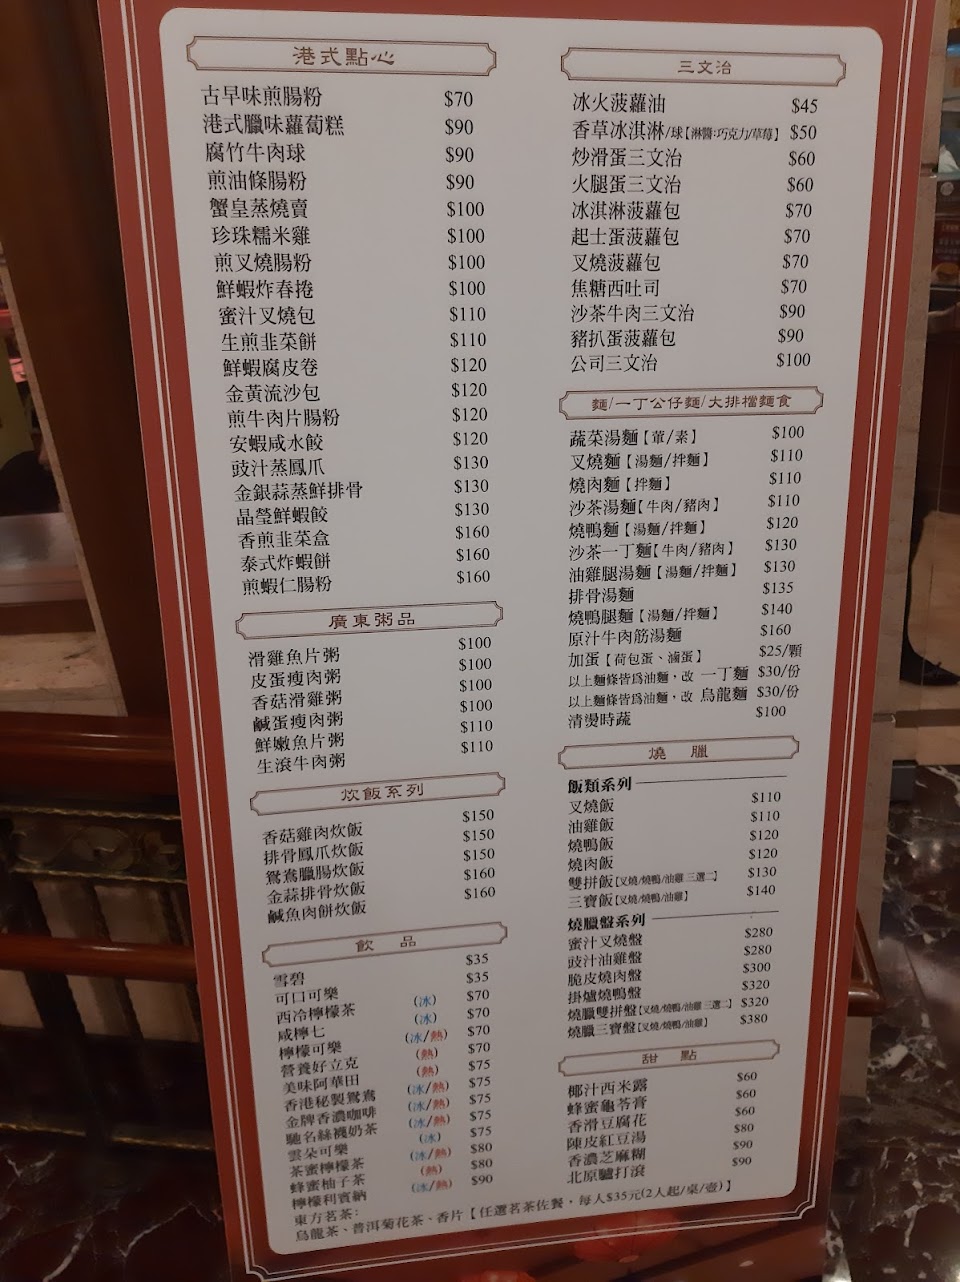 港式點心
古早味煎腸粉 $70
港式臘味蘿蔔糕 $90
腐竹牛肉球 $90
煎油條腸粉 $90
蟹皇蒸燒賣 $100
珍珠糯米雞 $100
煎叉燒腸粉 $100
鮮蝦炸春捲 $100
蜜汁叉燒包 $110
生煎韭菜餅 $110
鮮蝦腐皮卷 $120
金黃流沙包 $120
煎牛肉片腸粉 $120
安蝦咸水餃 $120
豉汁蒸鳳爪 $130
金銀蒜蒸鮮排骨 $130
晶瑩鮮蝦餃 $130
香煎韭菜盒 $160
泰式炸蝦餅 $160
煎蝦仁腸粉 $160
廣東粥品
滑雞魚片粥 $100
皮蛋瘦肉粥 $100
香菇滑雞粥 $100
鹹蛋瘦肉粥 $100
鮮嫩魚片粥 $110
生滾牛肉粥 $110
炊飯系列
香菇雞肉炊飯 $150
排骨鳳爪炊飯 $150
鴛鴦臘腸炊飯 $150
金蒜排骨炊飯 $160
鹹魚肉餅炊飯 $160
飲品
雪碧 $35
可口可樂 $35
西冷檸檬茶 (冰) $70
咸檸七 (冰) $70
檸檬可樂 (冰/熱) $70
營養好立克 (熱) $70
美味阿華田 (熱) $75
香港秘製鴛鴦 (冰/熱) $75
金牌香濃咖啡 (冰/熱) $75
馳名絲襪奶茶 (冰/熱) $75
雲朵可樂 (冰) $75
茶蜜檸檬茶 (冰/熱) $80
蜂蜜柚子茶 (熱) $80
檸檬利賓納 (冰/熱) $90
東方茗茶：
烏龍茶、普洱菊花茶、香片【任選茗茶佐餐，每人$35元(2人起/桌/壺)】
三文治
冰火菠蘿油 $45
香草冰淇淋/球【淋醬:巧克力/草莓】 $50
炒滑蛋三文治 $60
火腿蛋三文治 $60
冰淇淋菠蘿包 $70
起士蛋菠蘿包 $70
叉燒菠蘿包 $70
焦糖西吐司 $70
沙茶牛肉三文治 $90
豬扒蛋菠蘿包 $90
公司三文治 $100
麵/一丁公仔麵/大排檔麵食
蔬菜湯麵【葷/素】 $100
叉燒麵【湯麵/拌麵】 $110
燒肉麵【拌麵】 $110
沙茶湯麵【牛肉/豬肉】 $110
燒鴨麵【湯麵/拌麵】 $120
沙茶一丁麵【牛肉/豬肉】 $130
油雞腿湯麵【湯麵/拌麵】 $130
排骨湯麵 $135
燒鴨腿麵【湯麵/拌麵】 $140
原汁牛肉筋湯麵 $160
加蛋【荷包蛋、滷蛋】 $25/顆
以上麵條皆為油麵，改 一丁麵 $30/份
以上麵條皆為油麵，改 烏龍麵 $30/份
清燙時蔬 $100
燒臘
飯類系列
叉燒飯 $110
油雞飯 $110
燒鴨飯 $120
燒肉飯 $120
雙拼飯【叉燒/燒鴨/油雞 三選二】 $130
三寶飯【叉燒/燒鴨/油雞】 $140
燒臘盤系列
蜜汁叉燒盤 $280
豉汁油雞盤 $280
脆皮燒肉盤 $300
掛爐燒鴨盤 $320
燒臘雙拼盤【叉燒/燒鴨/油雞 三選二】 $320
燒臘三寶盤【叉燒/燒鴨/油雞】 $380
甜點
椰汁西米露 $60
蜂蜜龜苓膏 $60
香滑豆腐花 $60
陳皮紅豆湯 $80
香濃芝麻糊 $90
北原驢打滾 $90